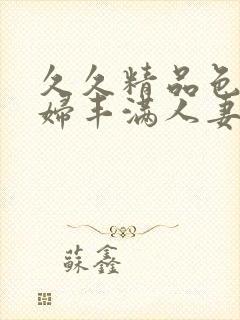 久久精品色
婦丰满人妻
蘇鑫